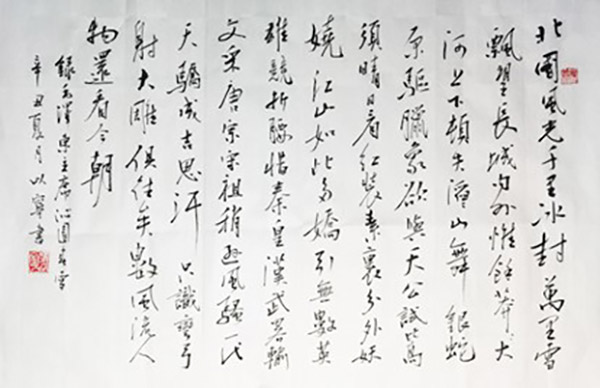 北國風光千里冰封萬里雪
飄望長城內外惟餘莽莽大
河上下頓失滔山舞銀蛇
原驅臘象欲與天公試比高
須晴日看紅裝素裹分外妖
嬈江山如此多嬌引無數英
雄競折腰惜秦皇漢武略輸
文采唐宗宋祖稍遜風騷一代
天驕成吉思汗只識彎弓
射大雕俱往矣數風流人
物還看今朝
錄毛澤東主席沁園春雪
辛丑夏月以寧書